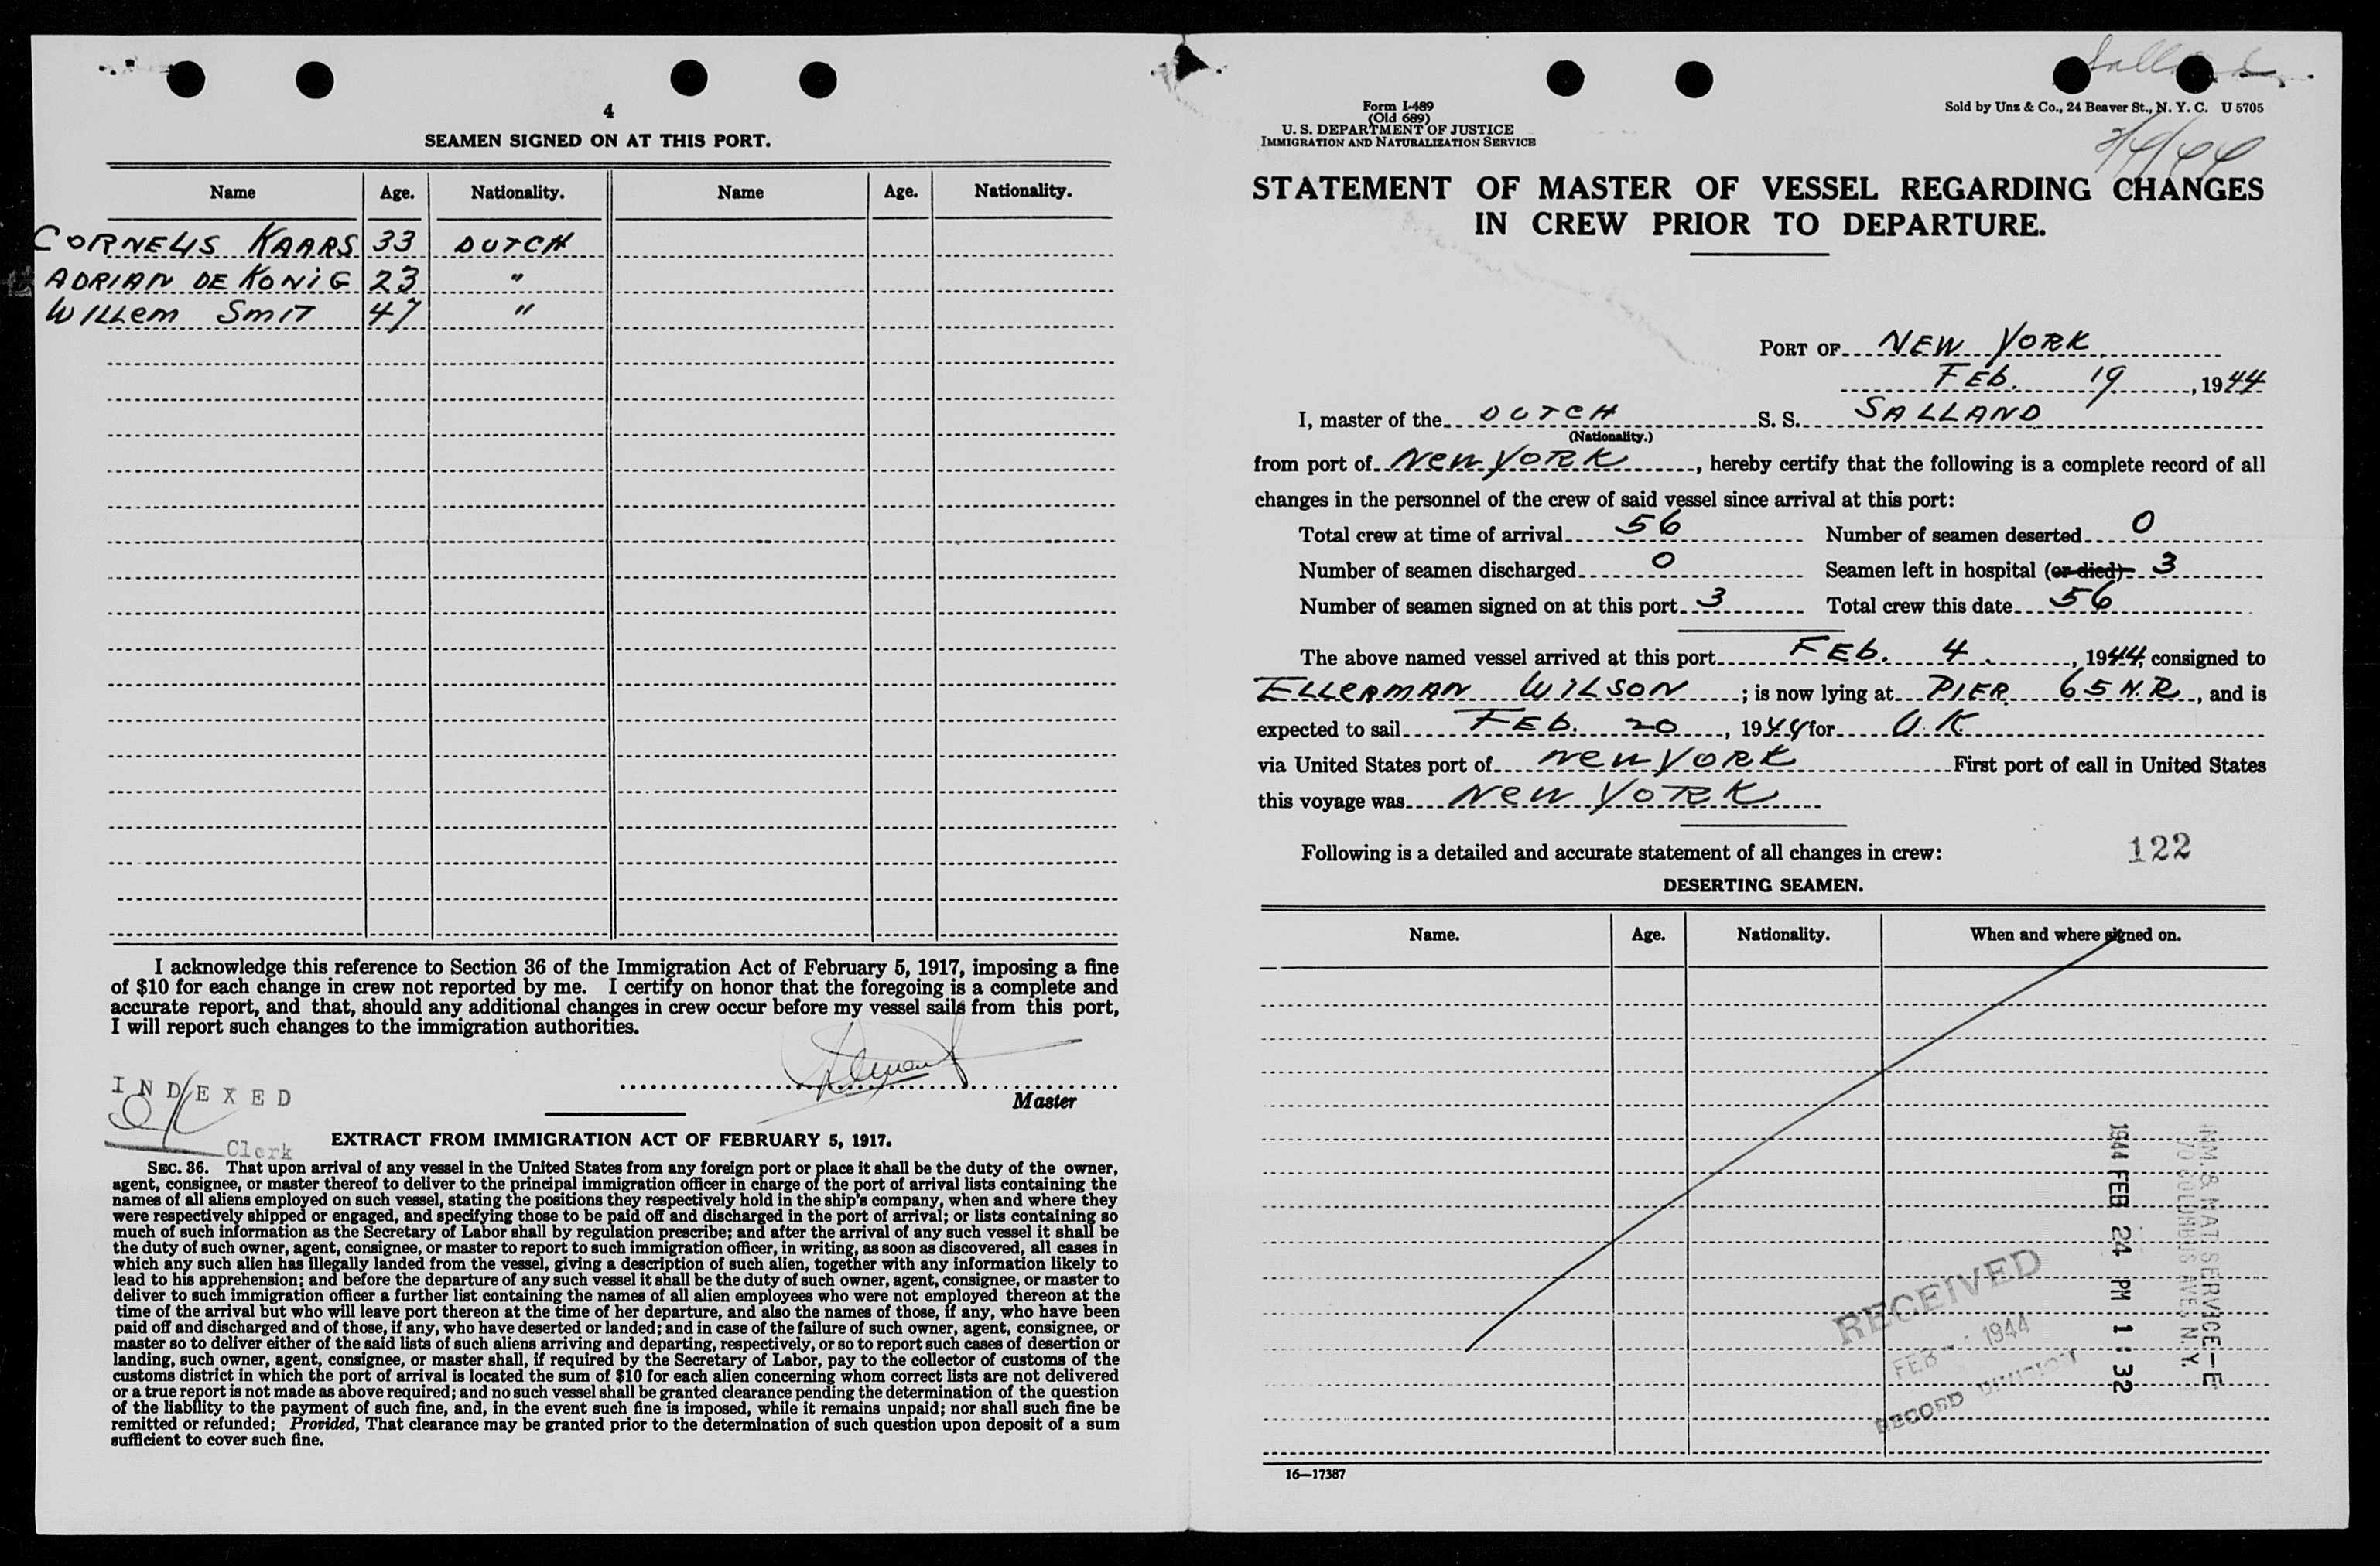 4
SEAMEN SIGNED ON AT THIS PORT.
Name Age. Nationality. Name Age. Nationality.
CORNELIS KAARS 33 DUTCH
ADRIAN DE KONIG 23 "
WILLEM SMIT 47 "
I acknowledge this reference to Section 36 of the Immigration Act of February 5, 1917, imposing a fine
of $10 for each change in crew not reported by me. I certify on honor that the foregoing is a complete and
accurate report, and that, should any additional changes in crew occur before my vessel sails from this port,
I will report such changes to the immigration authorities.
Master
INDEXED
Clerk
EXTRACT FROM IMMIGRATION ACT OF FEBRUARY 5, 1917.
SEC. 36. That upon arrival of any vessel in the United States from any foreign port or place it shall be the duty of the owner,
agent, consignee, or master thereof to deliver to the principal immigration officer in charge of the port of arrival lists containing the
names of all aliens employed on such vessel, stating the positions they respectively hold in the ship's company, when and where they
were respectively shipped or engaged, and specifying those to be paid off and discharged in the port of arrival; or lists containing so
much of such information as the Secretary of Labor shall by regulation prescribe; and after the arrival of any such vessel it shall be
the duty of such owner, agent, consignee, or master to report to such immigration officer, in writing, as soon as discovered, all cases in
which any such alien has illegally landed from the vessel, giving a description of such alien, together with any information likely to
lead to his apprehension; and before the departure of any such vessel it shall be the duty of such owner, agent, consignee, or master to
deliver to such immigration officer a further list containing the names of all alien employees who were not employed thereon at the
time of the arrival but who will leave port thereon at the time of her departure, and also the names of those, if any, who have been
paid off and discharged and of those, if any, who have deserted or landed; and in case of the failure of such owner, agent, consignee, or
master so to deliver either of the said lists of such aliens arriving and departing, respectively, or so to report such cases of desertion or
landing, such owner, agent, consignee, or master shall, if required by the Secretary of Labor, pay to the collector of customs of the
customs district in which the port of arrival is located the sum of $10 for each alien concerning whom correct lists are not delivered
or a true report is not made as above required; and no such vessel shall be granted clearance pending the determination of the question
of the liability to the payment of such fine, and, in the event such fine is imposed, while it remains unpaid; nor shall such fine be
remitted or refunded; Provided, That clearance may be granted prior to the determination of such question upon deposit of a sum
sufficient to cover such fine.
Form I-489
(Old 689)
U. S. DEPARTMENT OF JUSTICE
IMMIGRATION AND NATURALIZATION SERVICE
Sold by Unz & Co., 24 Beaver St., N. Y. C. U 5705
2/4/44
STATEMENT OF MASTER OF VESSEL REGARDING CHANGES
IN CREW PRIOR TO DEPARTURE.
PORT OF NEW YORK
FEB. 19, 1944
I, master of the DUTCH S. S. SALLAND
(Nationality.)
from port of NEW YORK, hereby certify that the following is a complete record of all
changes in the personnel of the crew of said vessel since arrival at this port:
Total crew at time of arrival 56 Number of seamen deserted 0
Number of seamen discharged 0 Seamen left in hospital (or died) 3
Number of seamen signed on at this port 3 Total crew this date 56
The above named vessel arrived at this port FEB. 4, 1944, consigned to
ELLERMAN WILSON; is now lying at PIER 65 N.R., and is
expected to sail FEB. 20, 1944 for U.K.
via United States port of NEW YORK First port of call in United States
this voyage was NEW YORK
Following is a detailed and accurate statement of all changes in crew:
122
DESERTING SEAMEN.
Name. Age. Nationality. When and where signed on.
IMM. & NAT SERVICE-E
70 COLUMBUS AVE, N.Y.
1944 FEB 24 PM 1:32
RECEIVED
FEB 1944
RECORD DIVISION
16—17387